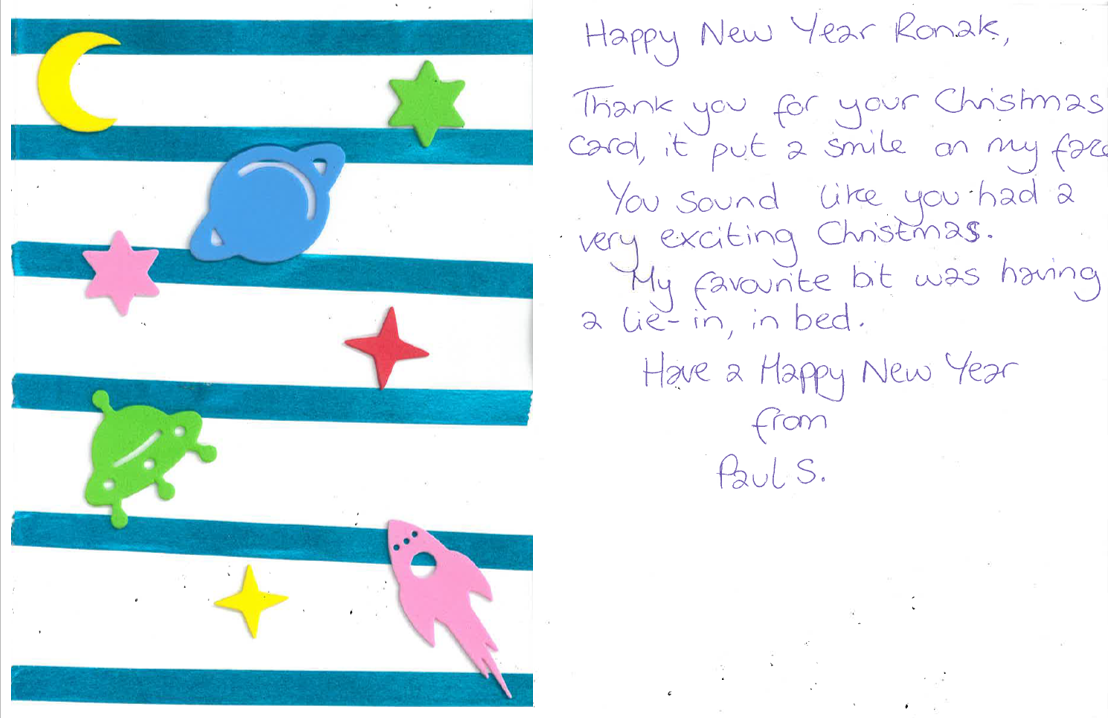 Happy New Year Ronak,
Thank you for your Christmas
card, it put a smile on my face
You sound like you had a
very exciting Christmas.
My favourite bit was having
a lie-in, in bed.
Have a Happy New Year
from
Paul S.